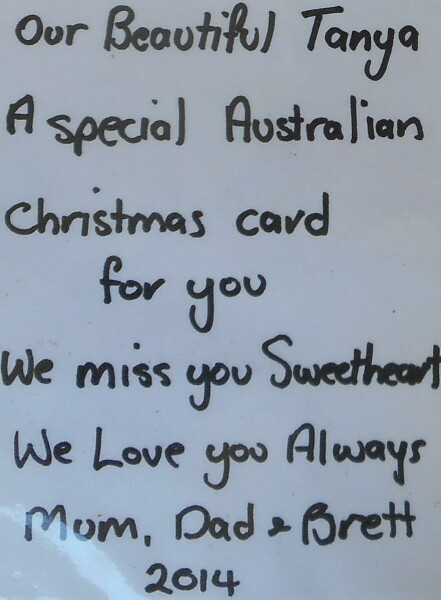 Our Beautiful Tanya
A special Australian
Christmas card
for you
We miss you Sweetheart
We Love you Always
Mum, Dad & Brett
2014